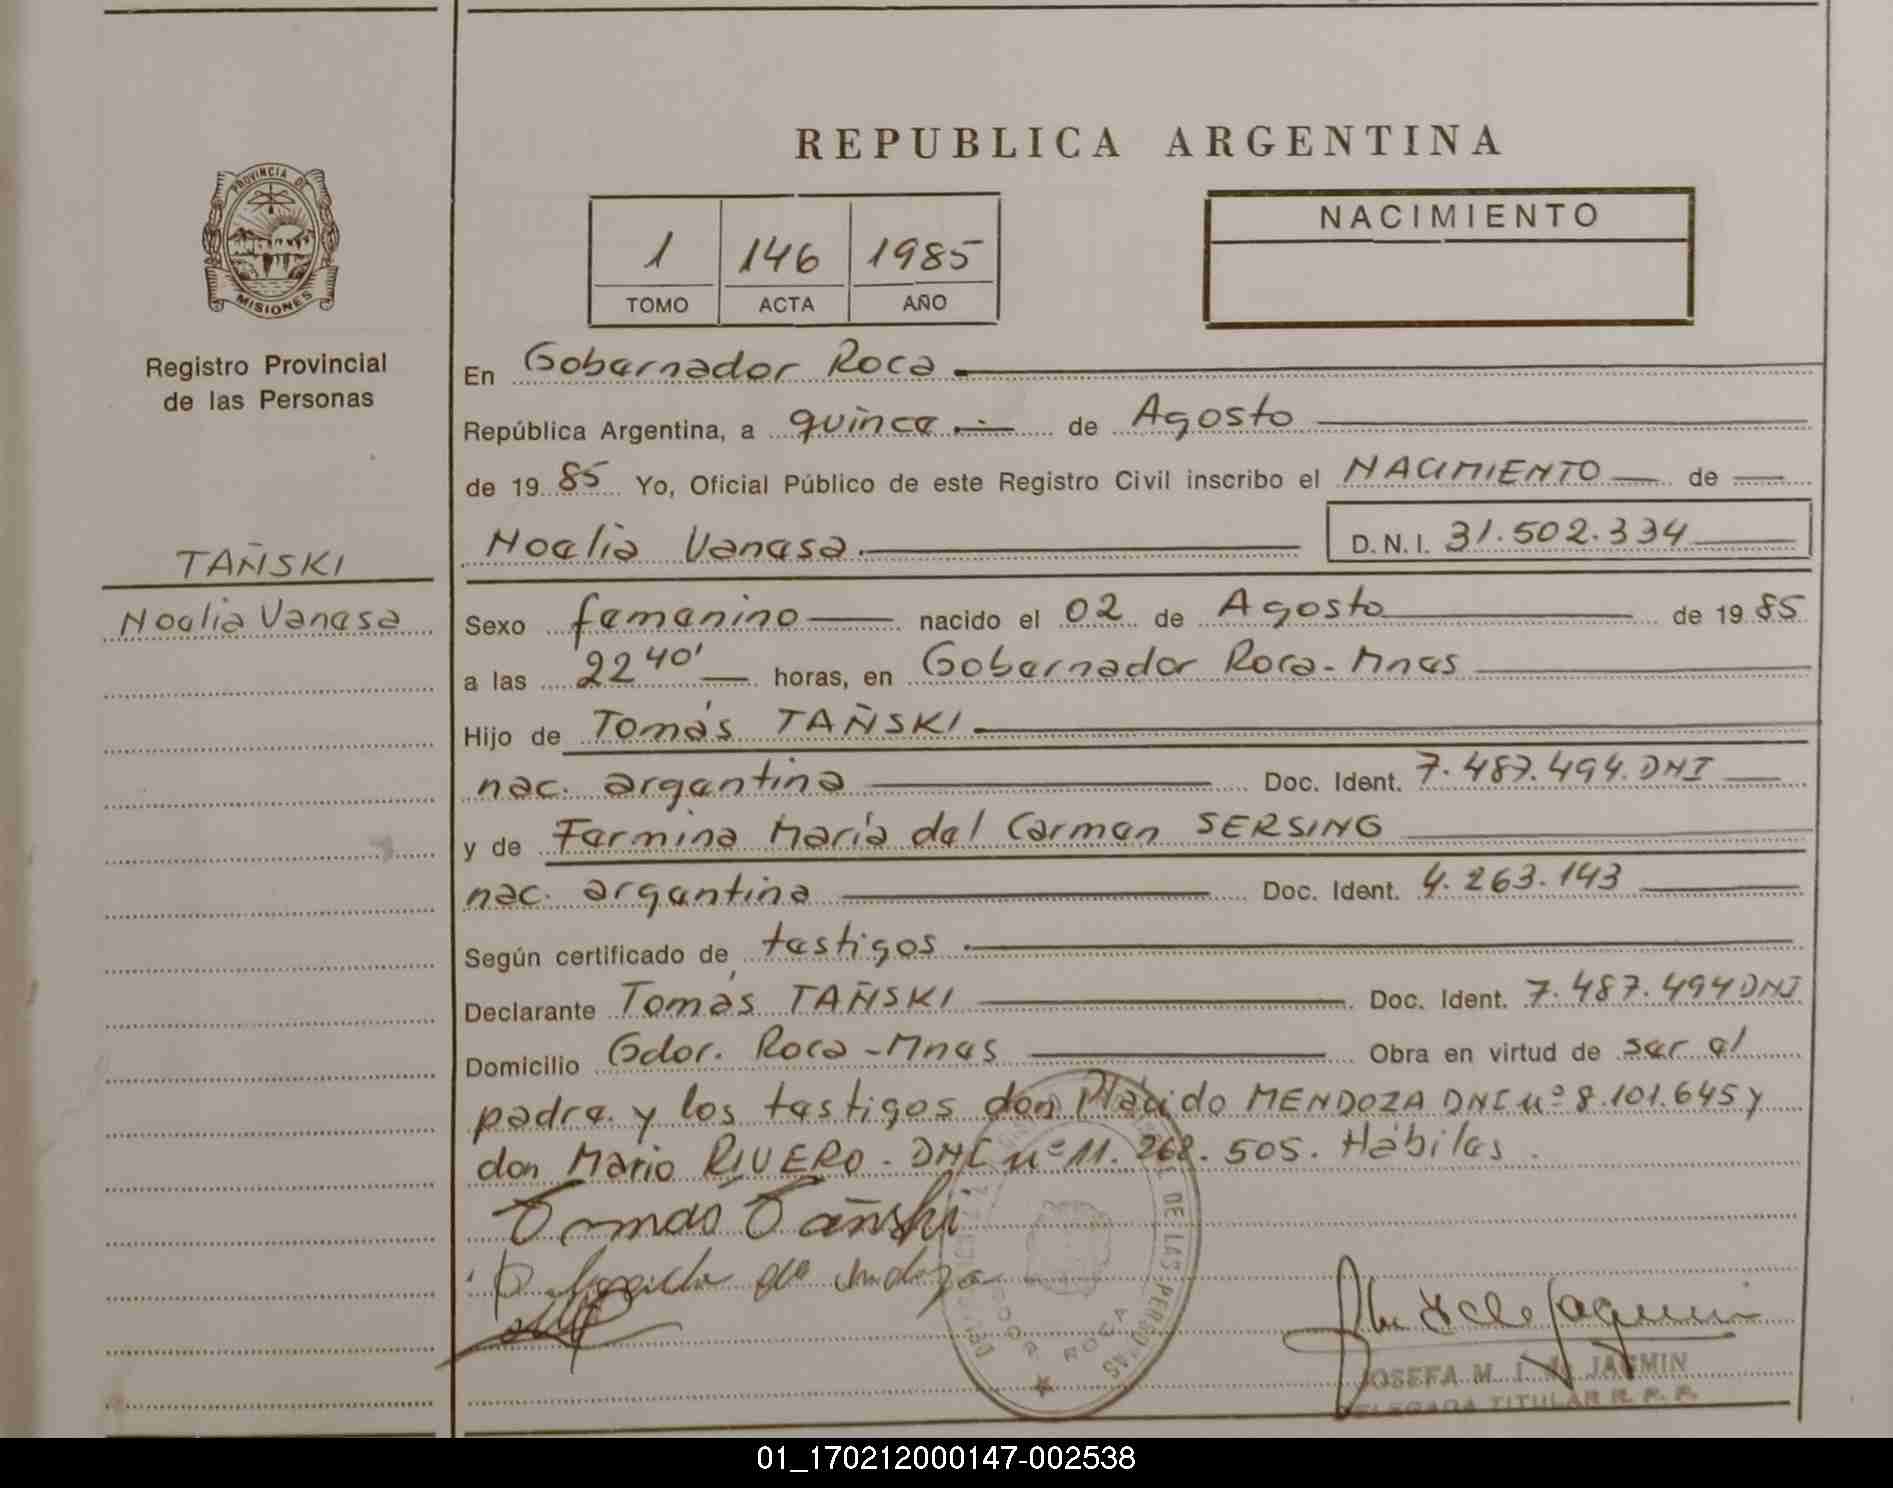 REPUBLICA ARGENTINA
PROVINCIA DE
MISIONES
Registro Provincial
de las Personas
1 146 1985
TOMO ACTA AÑO
NACIMIENTO
En Gobernador Roca
República Argentina, a quince de Agosto
de 1985 Yo, Oficial Público de este Registro Civil inscribo el NACIMIENTO de
Noelia Vanesa D.N.I. 31.502.334
TAÑSKI
Noelia Vanesa
Sexo femenino nacido el 02 de Agosto de 1985
a las 22 40' horas, en Gobernador Roca-Mnes
Hijo de Tomás TAÑSKI
nac. argentina Doc. Ident. 7.487.494.DNI
y de Fermina María del Carmen SERSING
nac. argentina Doc. Ident. 4.263.143
Según certificado de testigos
Declarante Tomás TAÑSKI Doc. Ident. 7.487.494 DNI
Domicilio Gdor. Roca-Mnes Obra en virtud de ser el
padre y los testigos don Plácido MENDOZA DNI nº 8.101.645 y
don Mario RIVERO - DNI nº 11.268.505. Hábiles.
Tomás Tañski
DE LAS PERSONAS
GDOR. ROCA
JOSEFA M. I. de JASMIN
DELEGADA TITULAR R. P. P.
01_170212000147-002538